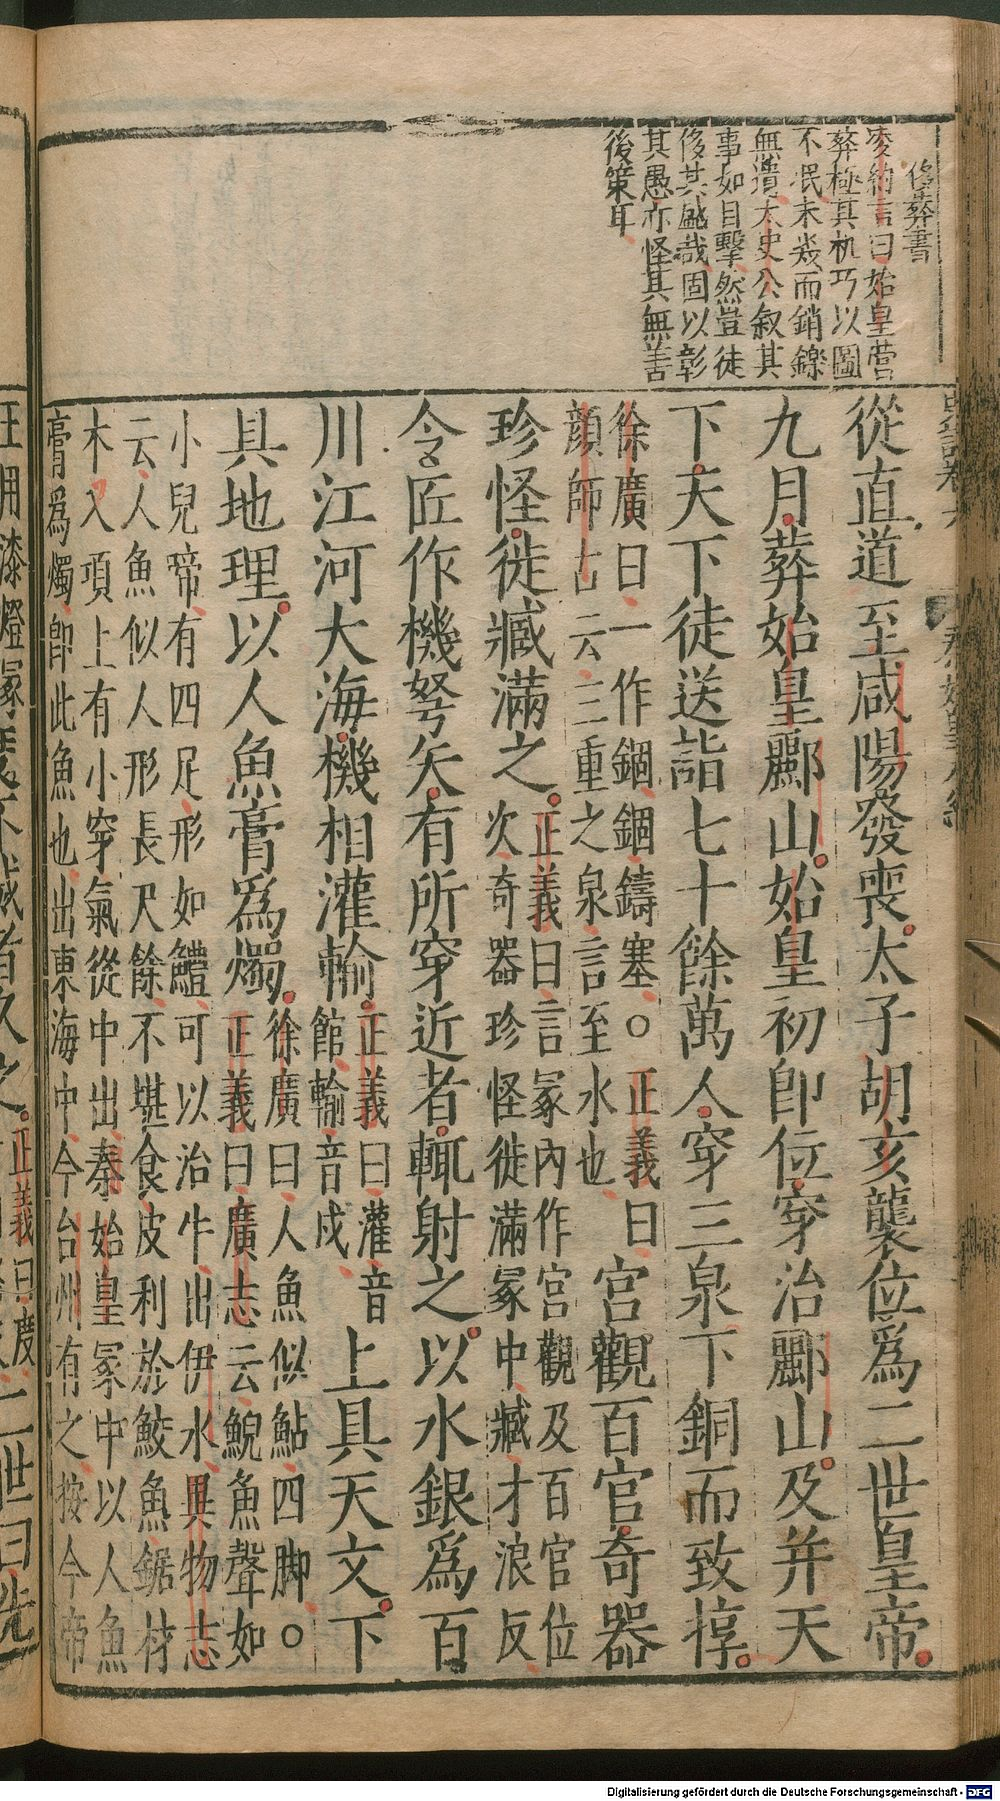 侈葬書
凌約言曰始皇營
葬極其机巧以圖
不泯未幾而銷鑠
無遺太史公叙其
事如目擊然豈徒
侈其盛哉固以彰
其愚亦怪其無善
後策耳
從直道至咸陽發喪太子胡亥襲位爲二世皇帝
九月葬始皇酈山始皇初卽位穿治酈山及并天
下天下徒送詣七十餘萬人穿三泉下銅而致椁
徐廣曰一作錮錮鑄塞○正義曰
顔師古云三重之泉言至水也
宮觀百官奇器
珍怪徙臧滿之
正義曰言冢內作宮觀及百官位
次奇器珍怪徙滿冢中臧才浪反
令匠作機弩矢有所穿近者輒射之以水銀爲百
川江河大海機相灌輸
正義曰灌音
館輸音戍
上具天文下
具地理以人魚膏爲燭
徐廣曰人魚似鮎四脚○
正義曰廣志云鯢魚聲如
小兒啼有四足形如鱧可以治牛出伊水異物志
云人魚似人形長尺餘不堪食皮利於鮫魚鋸材
木入項上有小穿氣從中出秦始皇冢中以人魚
膏爲燭卽此魚也出東海中今台州有之按今帝
王用漆燈冢
正義曰度
二世曰先
Digitalisierung gefördert durch die Deutsche Forschungsgemeinschaft - DFG